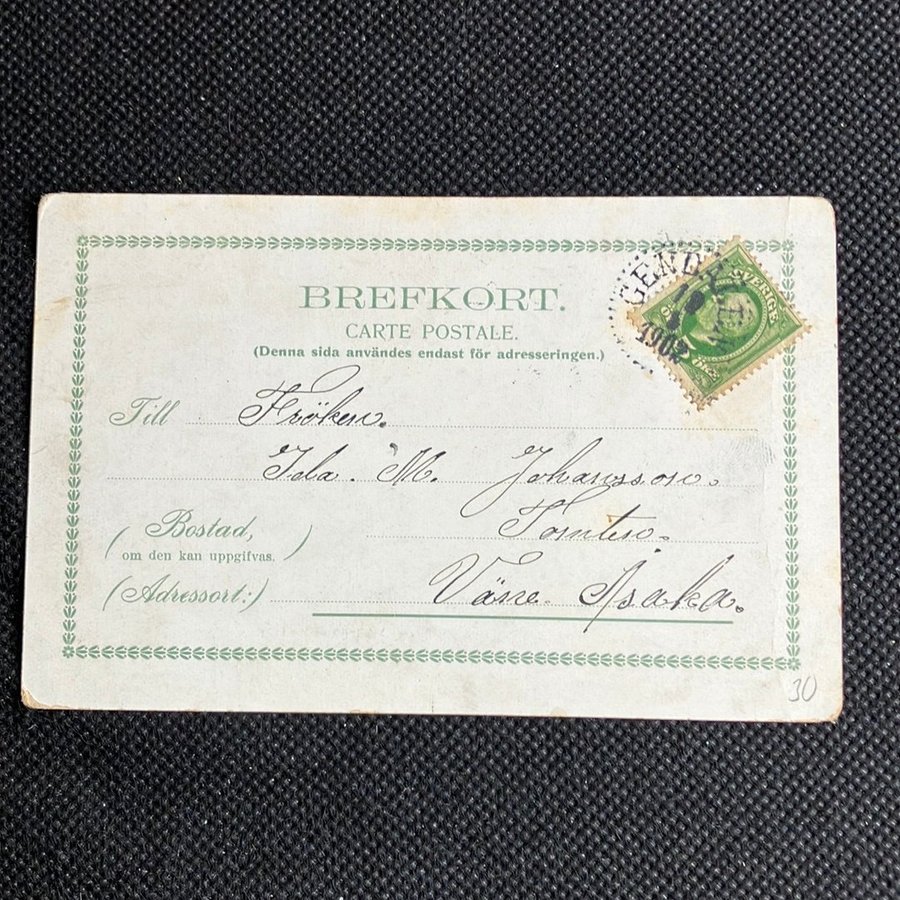 BREFKORT.
CARTE POSTALE.
(Denna sida användes endast för adresseringen.)
GENDALEN
19
1902
SVERIGE
Till Fröken.
Ida. M. Johansson.
Tomten.
(Bostad,
om den kan uppgifvas.)
(Adressort:) Väne-Asaka.
30